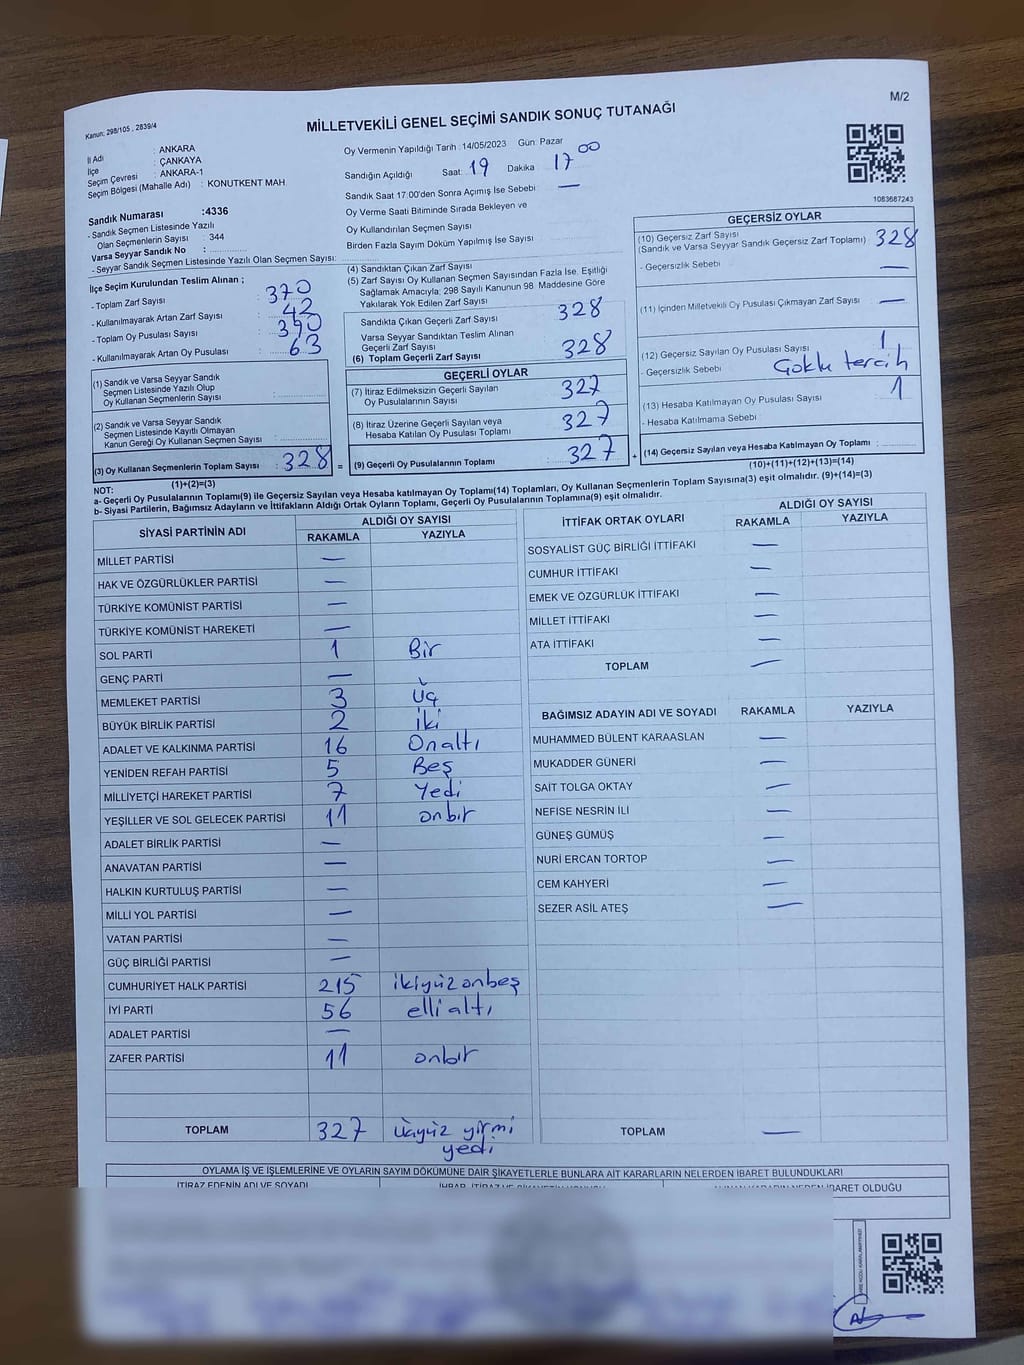 M/2
Kanun: 298/105 , 2839/4
MİLLETVEKİLİ GENEL SEÇİMİ SANDIK SONUÇ TUTANAĞI
İl Adı : ANKARA
İlçe : ÇANKAYA
Seçim Çevresi : ANKARA-1
Seçim Bölgesi (Mahalle Adı) : KONUTKENT MAH.
Sandık Numarası :4336
- Sandık Seçmen Listesinde Yazılı
Olan Seçmenlerin Sayısı : 344
Varsa Seyyar Sandık No :
- Seyyar Sandık Seçmen Listesinde Yazılı Olan Seçmen Sayısı:
İlçe Seçim Kurulundan Teslim Alınan ;
- Toplam Zarf Sayısı : 370
- Kullanılmayarak Artan Zarf Sayısı : 42
- Toplam Oy Pusulası Sayısı : 390
- Kullanılmayarak Artan Oy Pusulası : 63
(1) Sandık ve Varsa Seyyar Sandık
Seçmen Listesinde Yazılı Olup
Oy Kullanan Seçmenlerin Sayısı :
(2) Sandık ve Varsa Seyyar Sandık
Seçmen Listesinde Kayıtlı Olmayan
Kanun Gereği Oy Kullanan Seçmen Sayısı :
(3) Oy Kullanan Seçmenlerin Toplam Sayısı : 328 =
(1)+(2)=(3)
Oy Vermenin Yapıldığı Tarih : 14/05/2023 Gün: Pazar
Sandığın Açıldığı Saat: 19 Dakika 17 00
Sandık Saat 17:00'den Sonra Açımış İse Sebebi —
Oy Verme Saati Bitiminde Sırada Bekleyen ve
Oy Kullandırılan Seçmen Sayısı
Birden Fazla Sayım Döküm Yapılmış İse Sayısı
(4) Sandıktan Çıkan Zarf Sayısı
(5) Zarf Sayısı Oy Kullanan Seçmen Sayısından Fazla İse, Eşitliği
Sağlamak Amacıyla; 298 Sayılı Kanunun 98. Maddesine Göre
Yakılarak Yok Edilen Zarf Sayısı
Sandıkta Çıkan Geçerli Zarf Sayısı 328
Varsa Seyyar Sandıktan Teslim Alınan
Geçerli Zarf Sayısı
(6) Toplam Geçerli Zarf Sayısı 328
GEÇERLİ OYLAR
(7) İtiraz Edilmeksizin Geçerli Sayılan
Oy Pusulalarının Sayısı 327
(8) İtiraz Üzerine Geçerli Sayılan veya
Hesaba Katılan Oy Pusulası Toplamı 327
(9) Geçerli Oy Pusulalarının Toplamı : 327 +
1083687243
GEÇERSİZ OYLAR
(10) Geçersiz Zarf Sayısı
(Sandık ve Varsa Seyyar Sandık Geçersiz Zarf Toplamı) 328
- Geçersizlik Sebebi —
(11) İçinden Milletvekili Oy Pusulası Çıkmayan Zarf Sayısı —
(12) Geçersiz Sayılan Oy Pusulası Sayısı 1
- Geçersizlik Sebebi Çoklu tercih
(13) Hesaba Katılmayan Oy Pusulası Sayısı 1
- Hesaba Katılmama Sebebi
(14) Geçersiz Sayılan veya Hesaba Katılmayan Oy Toplamı :
(10)+(11)+(12)+(13)=(14)
NOT:
a- Geçerli Oy Pusulalarının Toplamı(9) ile Geçersiz Sayılan veya Hesaba katılmayan Oy Toplamı(14) Toplamları, Oy Kullanan Seçmenlerin Toplam Sayısına(3) eşit olmalıdır. (9)+(14)=(3)
b- Siyasi Partilerin, Bağımsız Adayların ve İttifakların Aldığı Ortak Oyların Toplamı, Geçerli Oy Pusulalarının Toplamına(9) eşit olmalıdır.
SİYASİ PARTİNİN ADI ALDIĞI OY SAYISI
RAKAMLA YAZIYLA
MİLLET PARTİSİ —
HAK VE ÖZGÜRLÜKLER PARTİSİ —
TÜRKİYE KOMÜNİST PARTİSİ —
TÜRKİYE KOMÜNİST HAREKETİ —
SOL PARTİ 1 Bir
GENÇ PARTİ —
MEMLEKET PARTİSİ 3 Üç
BÜYÜK BİRLİK PARTİSİ 2 İki
ADALET VE KALKINMA PARTİSİ 16 Onaltı
YENİDEN REFAH PARTİSİ 5 Beş
MİLLİYETÇİ HAREKET PARTİSİ 7 Yedi
YEŞİLLER VE SOL GELECEK PARTİSİ 11 onbir
ADALET BİRLİK PARTİSİ —
ANAVATAN PARTİSİ —
HALKIN KURTULUŞ PARTİSİ —
MİLLİ YOL PARTİSİ —
VATAN PARTİSİ —
GÜÇ BİRLİĞİ PARTİSİ —
CUMHURİYET HALK PARTİSİ 215 ikiyüzonbeş
İYİ PARTİ 56 ellialtı
ADALET PARTİSİ —
ZAFER PARTİSİ 11 onbir
TOPLAM 327 üçyüz yirmi
yedi
İTTİFAK ORTAK OYLARI ALDIĞI OY SAYISI
RAKAMLA YAZIYLA
SOSYALİST GÜÇ BİRLİĞİ İTTİFAKI —
CUMHUR İTTİFAKI —
EMEK VE ÖZGÜRLÜK İTTİFAKI —
MİLLET İTTİFAKI —
ATA İTTİFAKI —
TOPLAM —
BAĞIMSIZ ADAYIN ADI VE SOYADI RAKAMLA YAZIYLA
MUHAMMED BÜLENT KARAASLAN —
MUKADDER GÜNERİ —
SAİT TOLGA OKTAY —
NEFİSE NESRİN İLİ —
GÜNEŞ GÜMÜŞ —
NURİ ERCAN TORTOP —
CEM KAHYERİ —
SEZER ASİL ATEŞ —
TOPLAM —
OYLAMA İŞ VE İŞLEMLERİNE VE OYLARIN SAYIM DÖKÜMÜNE DAİR ŞİKAYETLERLE BUNLARA AİT KARARLARIN NELERDEN İBARET BULUNDUKLARI
İTİRAZ EDENİN ADI VE SOYADI
İBARET OLDUĞU